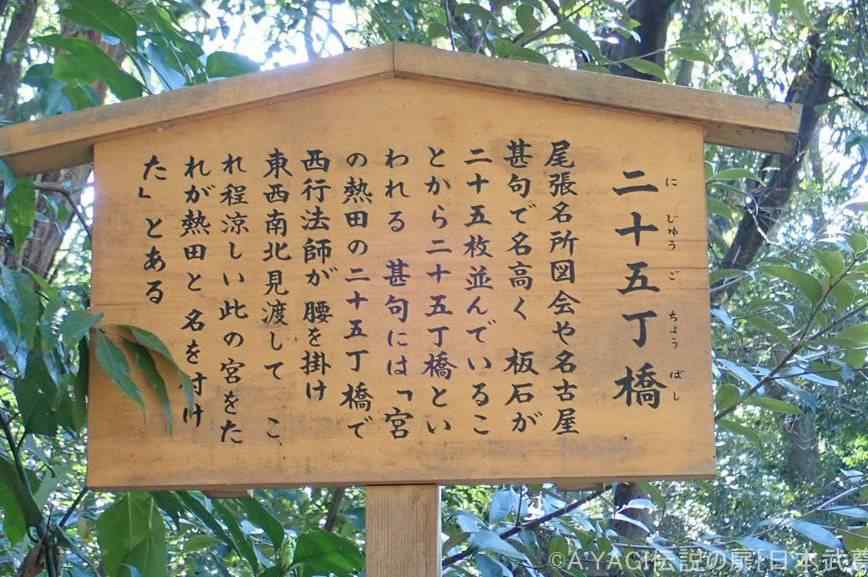 二十五丁橋
に じゅう ご ちょう ばし
尾張名所図会や名古屋
甚句で名高く 板石が
二十五枚並んでいるこ
とから二十五丁橋とい
われる 甚句には「宮
の熱田の二十五丁橋で
西行法師が腰を掛け
東西南北見渡して こ
れ程涼しい此の宮をた
れが熱田と名を付け
た」とある
©A.YAGI伝説の扉と日本武